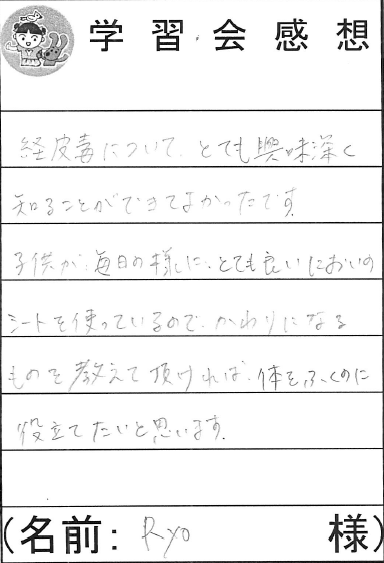 学習会感想
経皮毒について、とても興味深く
知ることができてよかったです。
子供が、毎日の様に、とても良いにおいの
シートを使っているので、かわりになる
ものを教えて頂ければ、体をふくのに
役立てたいと思います。
(名前: Ryo 様)